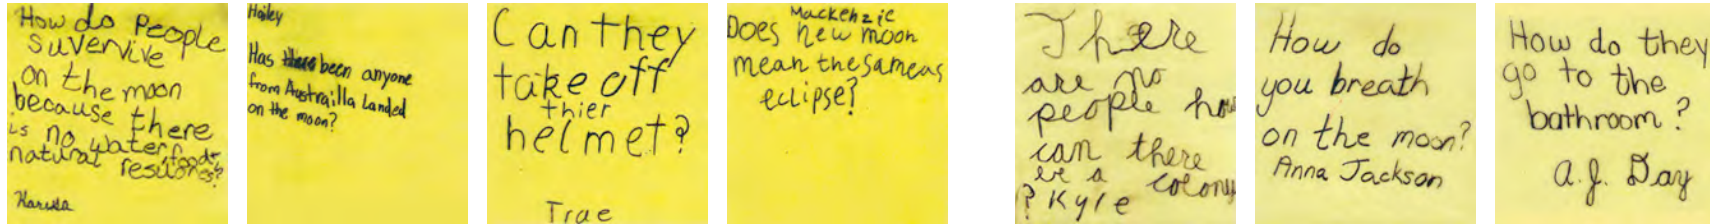 How do People
suvervive
on the moon
because there
is no water, food,
natural
Karissa
Hailey
Has been anyone
from Austrailla Landed
on the moon?
Can they
take off
thier
helmet?
Trae
Mackenzie
Does new moon
mean the same as
eclipse?
There
are no
people how
can there
be a colony
? Kyle
How do
you breath
on the moon?
Anna Jackson
How do they
go to the
bathroom?
A.J. Day